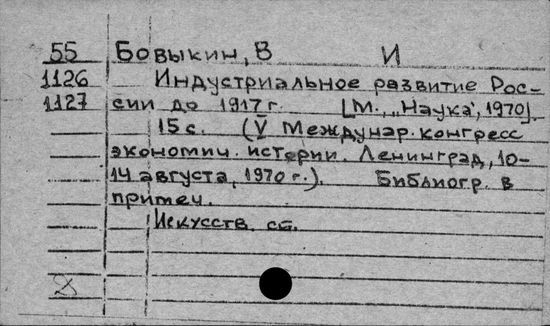 55 Бовыкин, В И
1126 Индустриальное развитие Рос-
1127 сии до 1917 г. [М., „Наука", 1970].
15 с. (V Междунар. конгресс
экономич. истерии. Ленинград, 10-
14 августа, 1970 г.). Библиогр. в
примеч.
Искусств. ст.